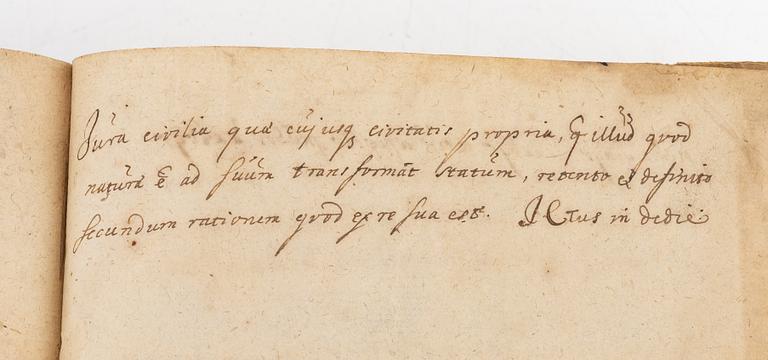 Jura civilia quæ cujusq civitatis propria, q̃ illũd qvod
natũræ ẽ ad sũũm transformãt statũm, retento et definito
secundum rationem qvod ex re sua est. JCtus in dedic